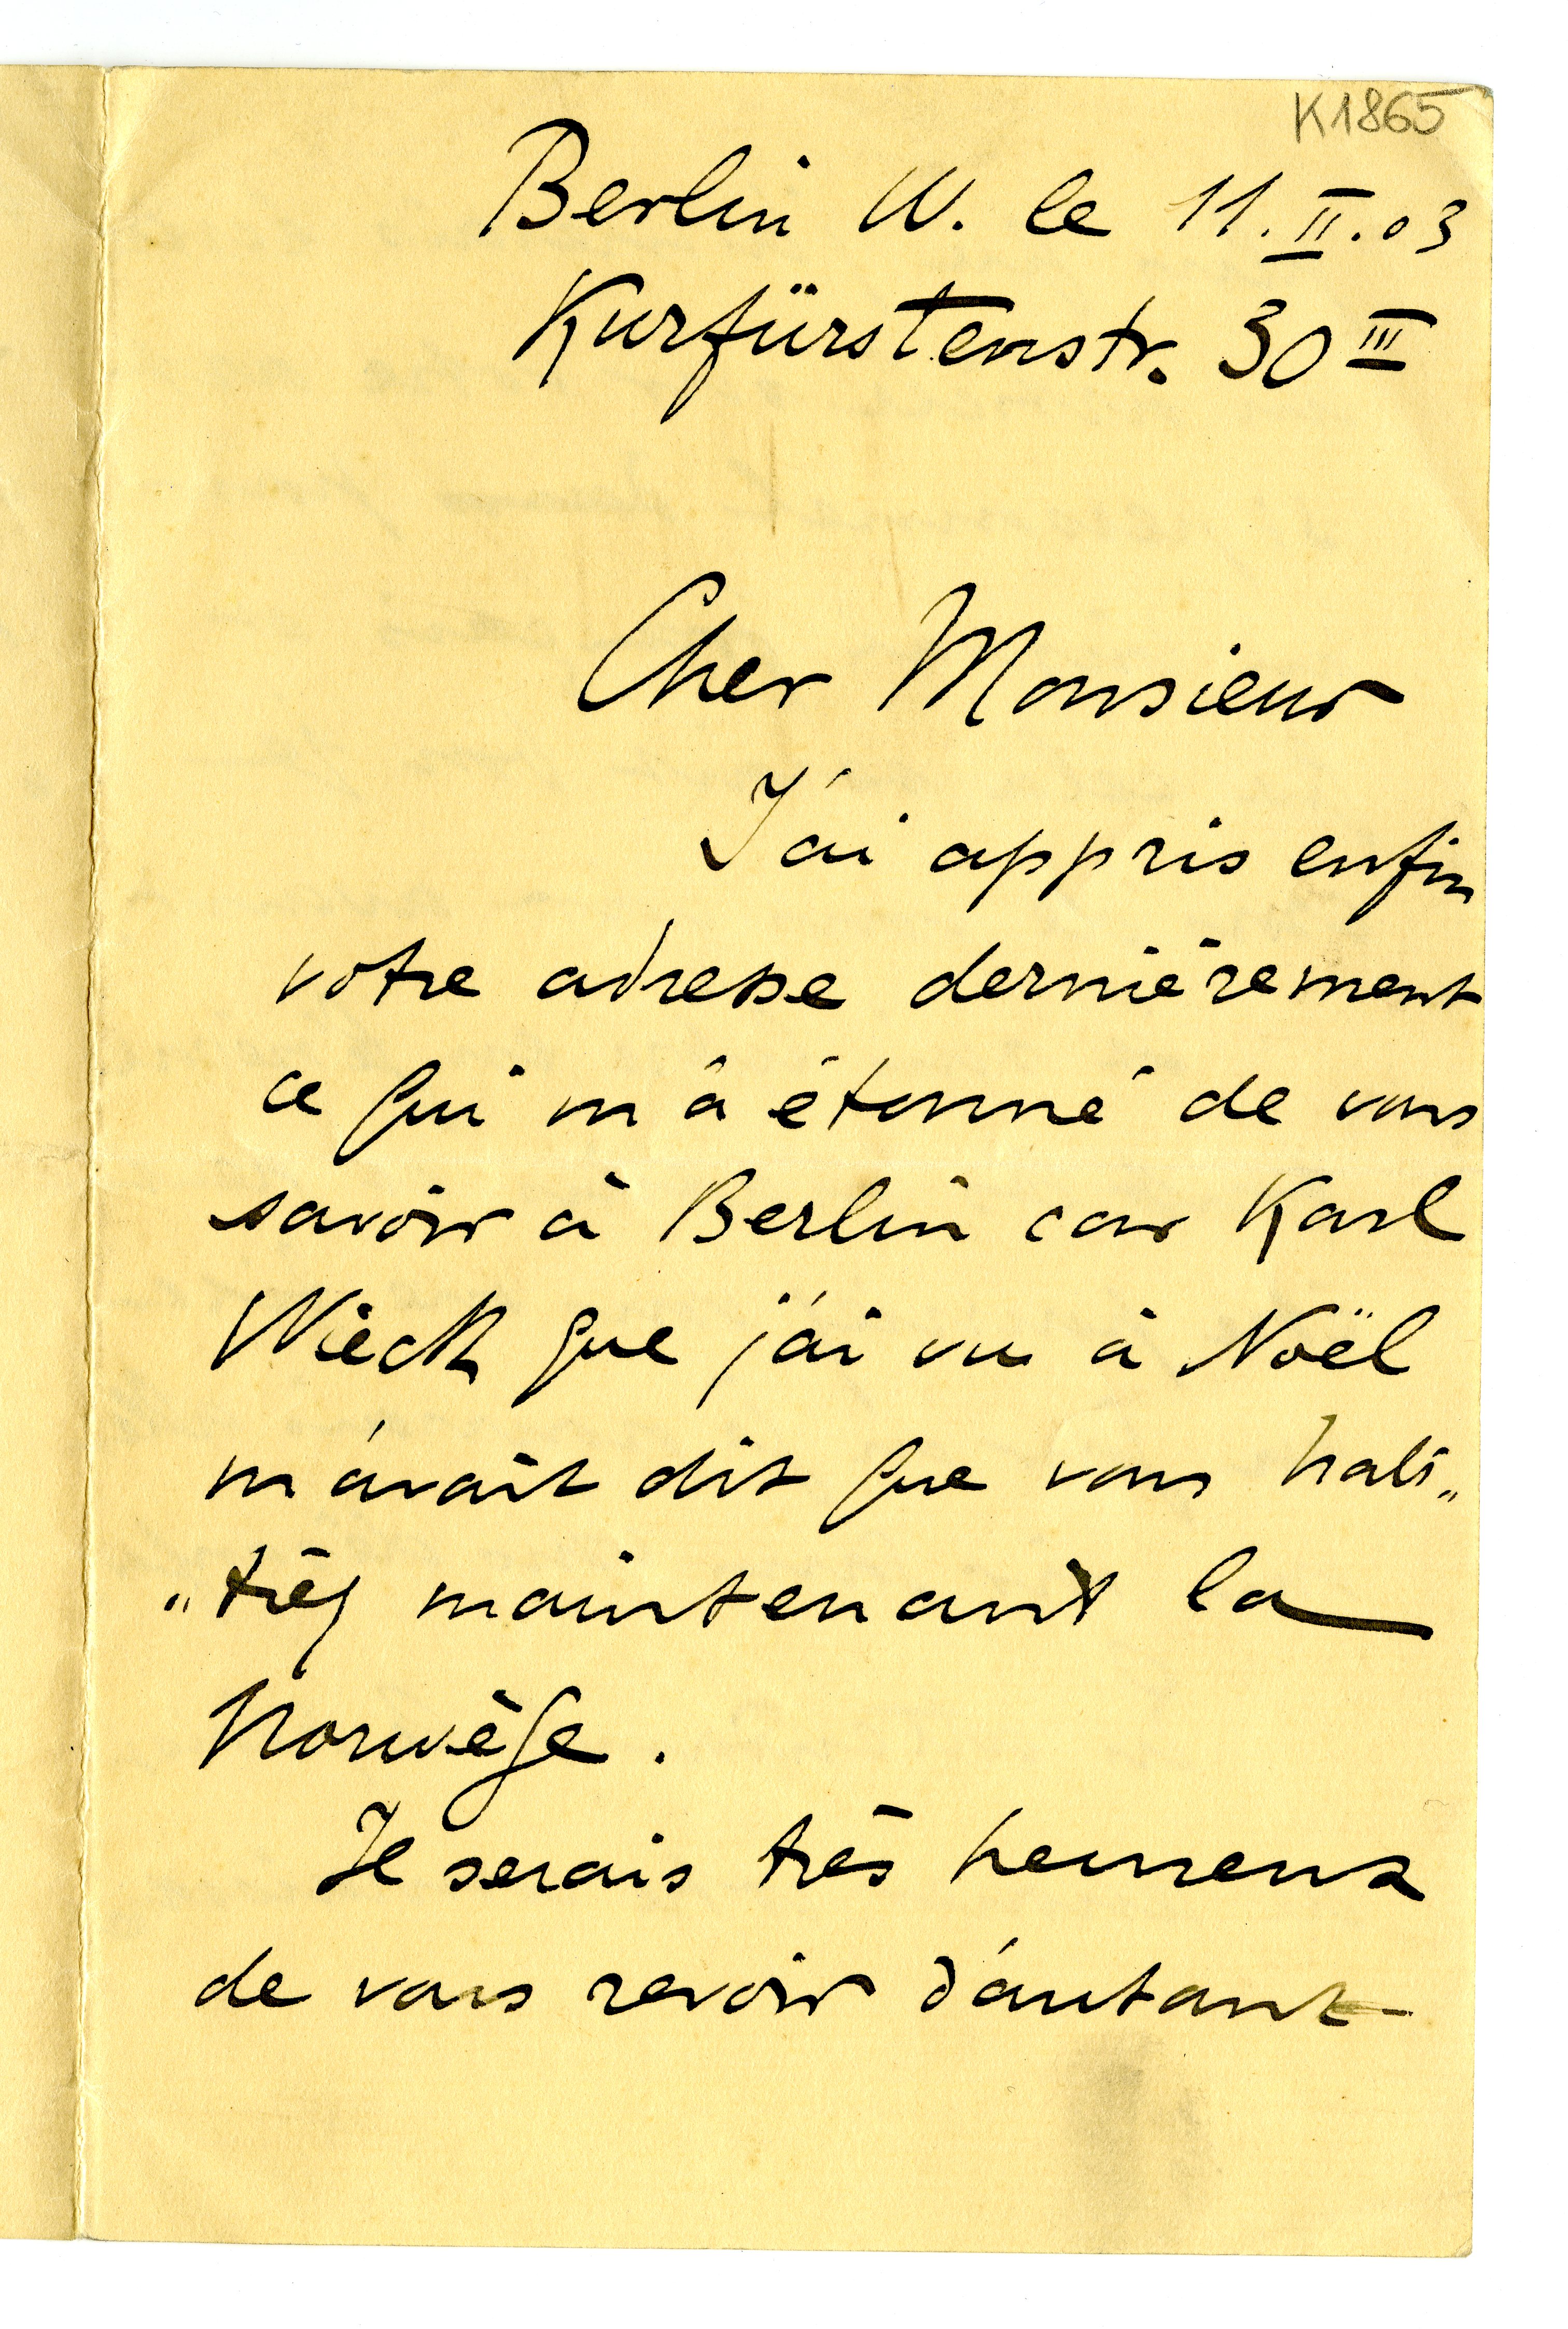 K1865
Berlin W. le 11.II.03
Kurfürstenstr. 30 III
Cher Monsieur
J'ai appris enfin
votre adresse dernièrement
ce qui m'a étonné de vous
savoir à Berlin car Karl
Wieck que j'ai vu à Noël
m'avait dit que vous habi„
„tiéz maintenant la
Norwège.
Je serais très heureux
de vous revoir d'autant